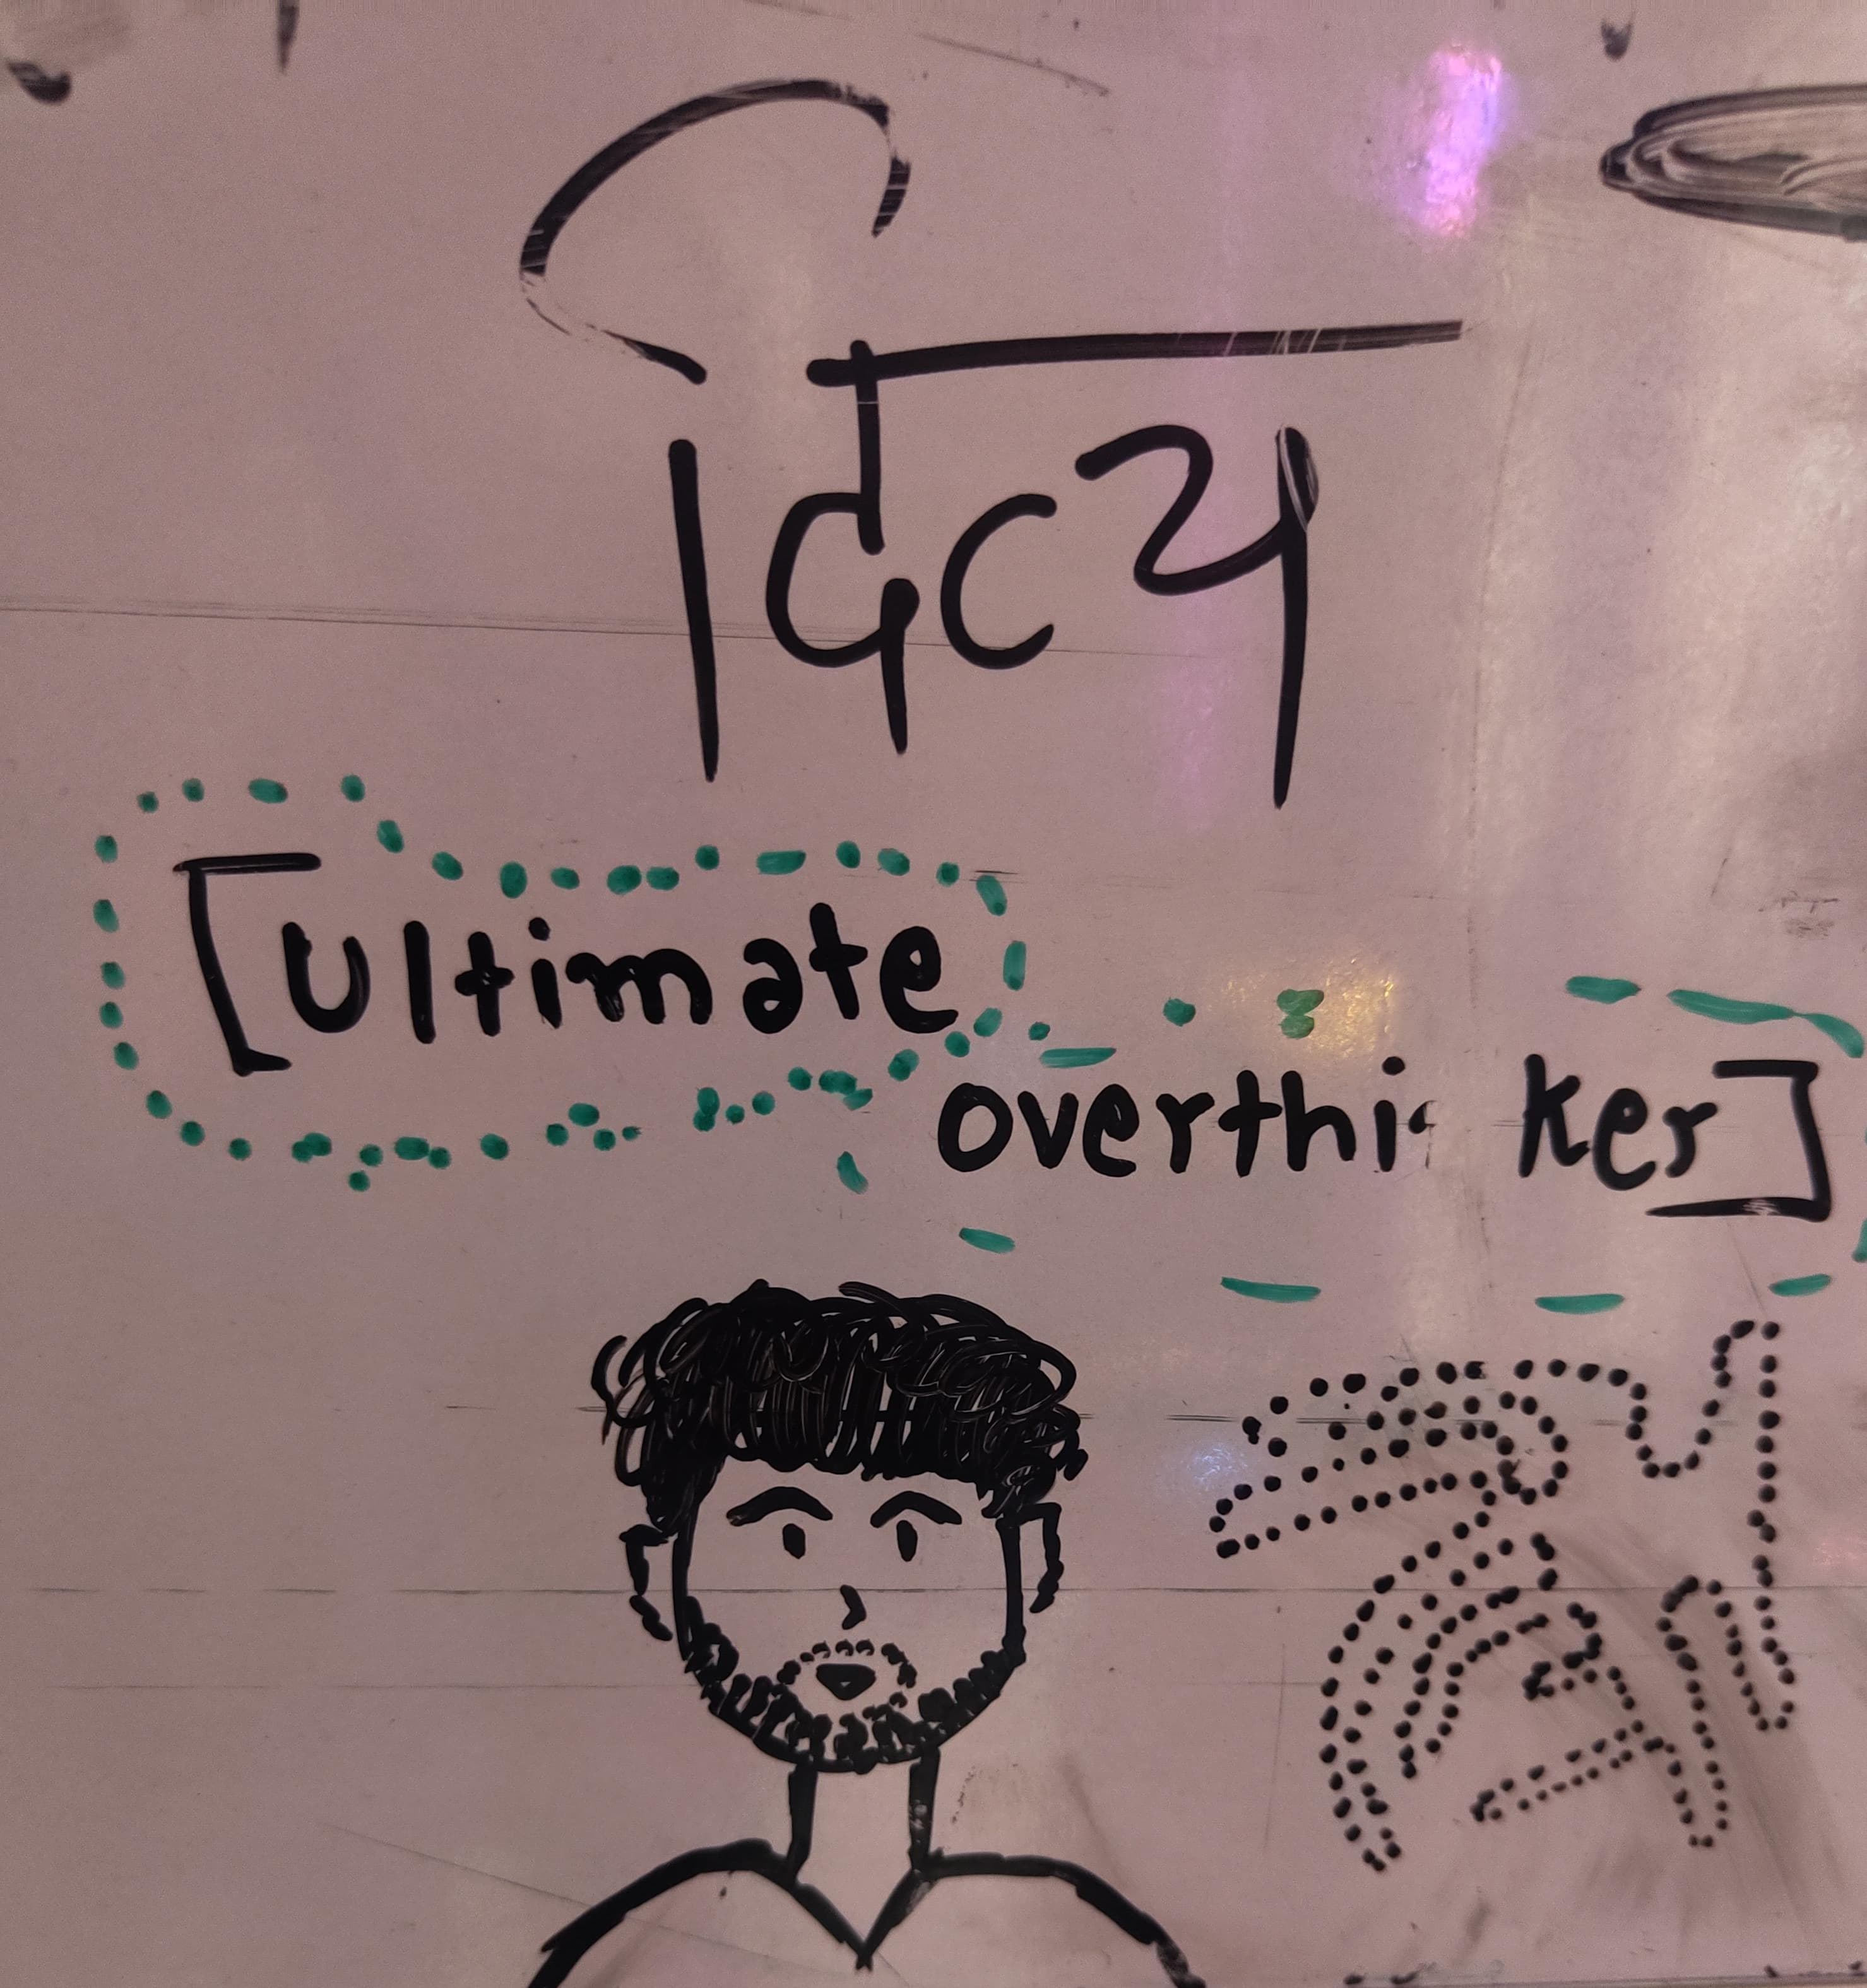 दिव्य
[Ultimate
overthi ker]